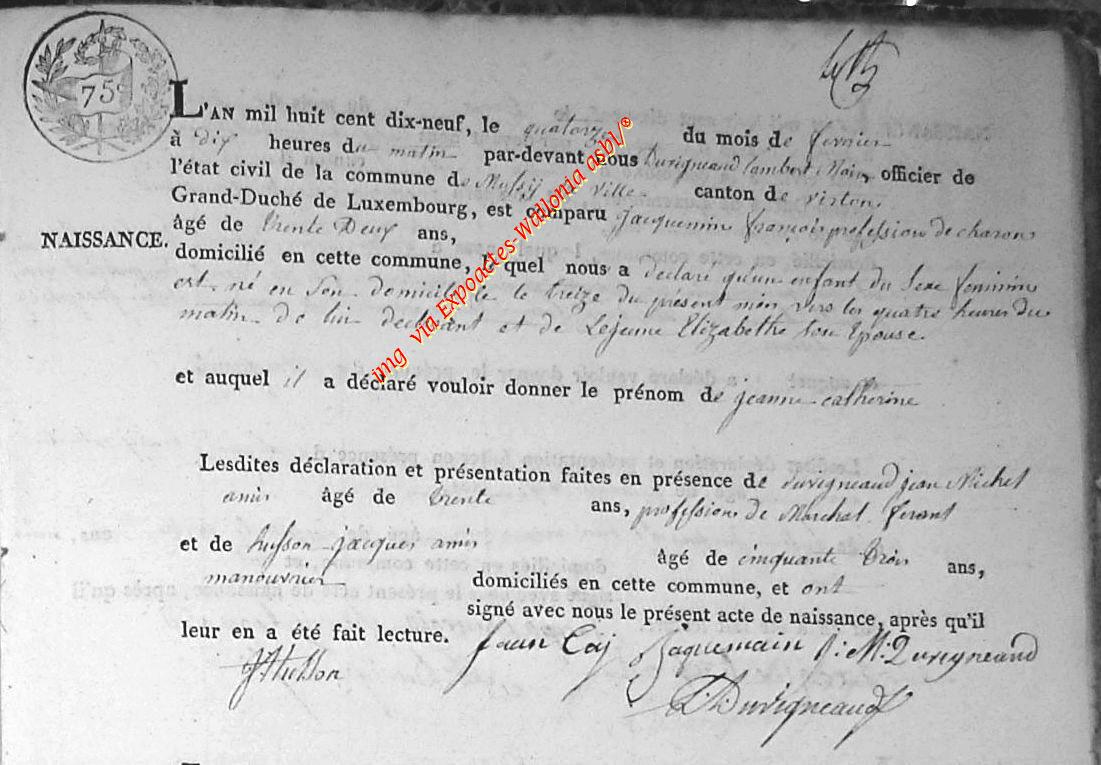 75
L'AN mil huit cent dix-neuf, le quatorze du mois de fevrier
à dix heures du matin par-devant nous Duvigneaud Lambert Mair, officier de
l'état civil de la commune de Mussy la ville canton de virton,
Grand-Duché de Luxembourg, est comparu Jacquemin françois profession de charon
âgé de trente Deux ans,
NAISSANCE.
domicilié en cette commune, lequel nous a declaré qu'un enfant du sexe feminin
est né en Son domicile le treize du présent mois vers les quatre heures du
matin de lui declarant et de Lejeune Elizabethe son Epouse.
et auquel il a déclaré vouloir donner le prénom de jeanne catherine
Lesdites déclaration et présentation faites en présence de duvigneaud jean Michel
amis âgé de trente ans, profession de Marchal ferant
et de husson jacques amis âgé de cinquante trois ans,
manouvrier domiciliés en cette commune, et ont
signé avec nous le présent acte de naissance, après qu'il
leur en a été fait lecture. Jaquemain J: M: Duvigneaud
JHusson
L: Duvigneaud
img via Expoactes-Wallonia asbl/®